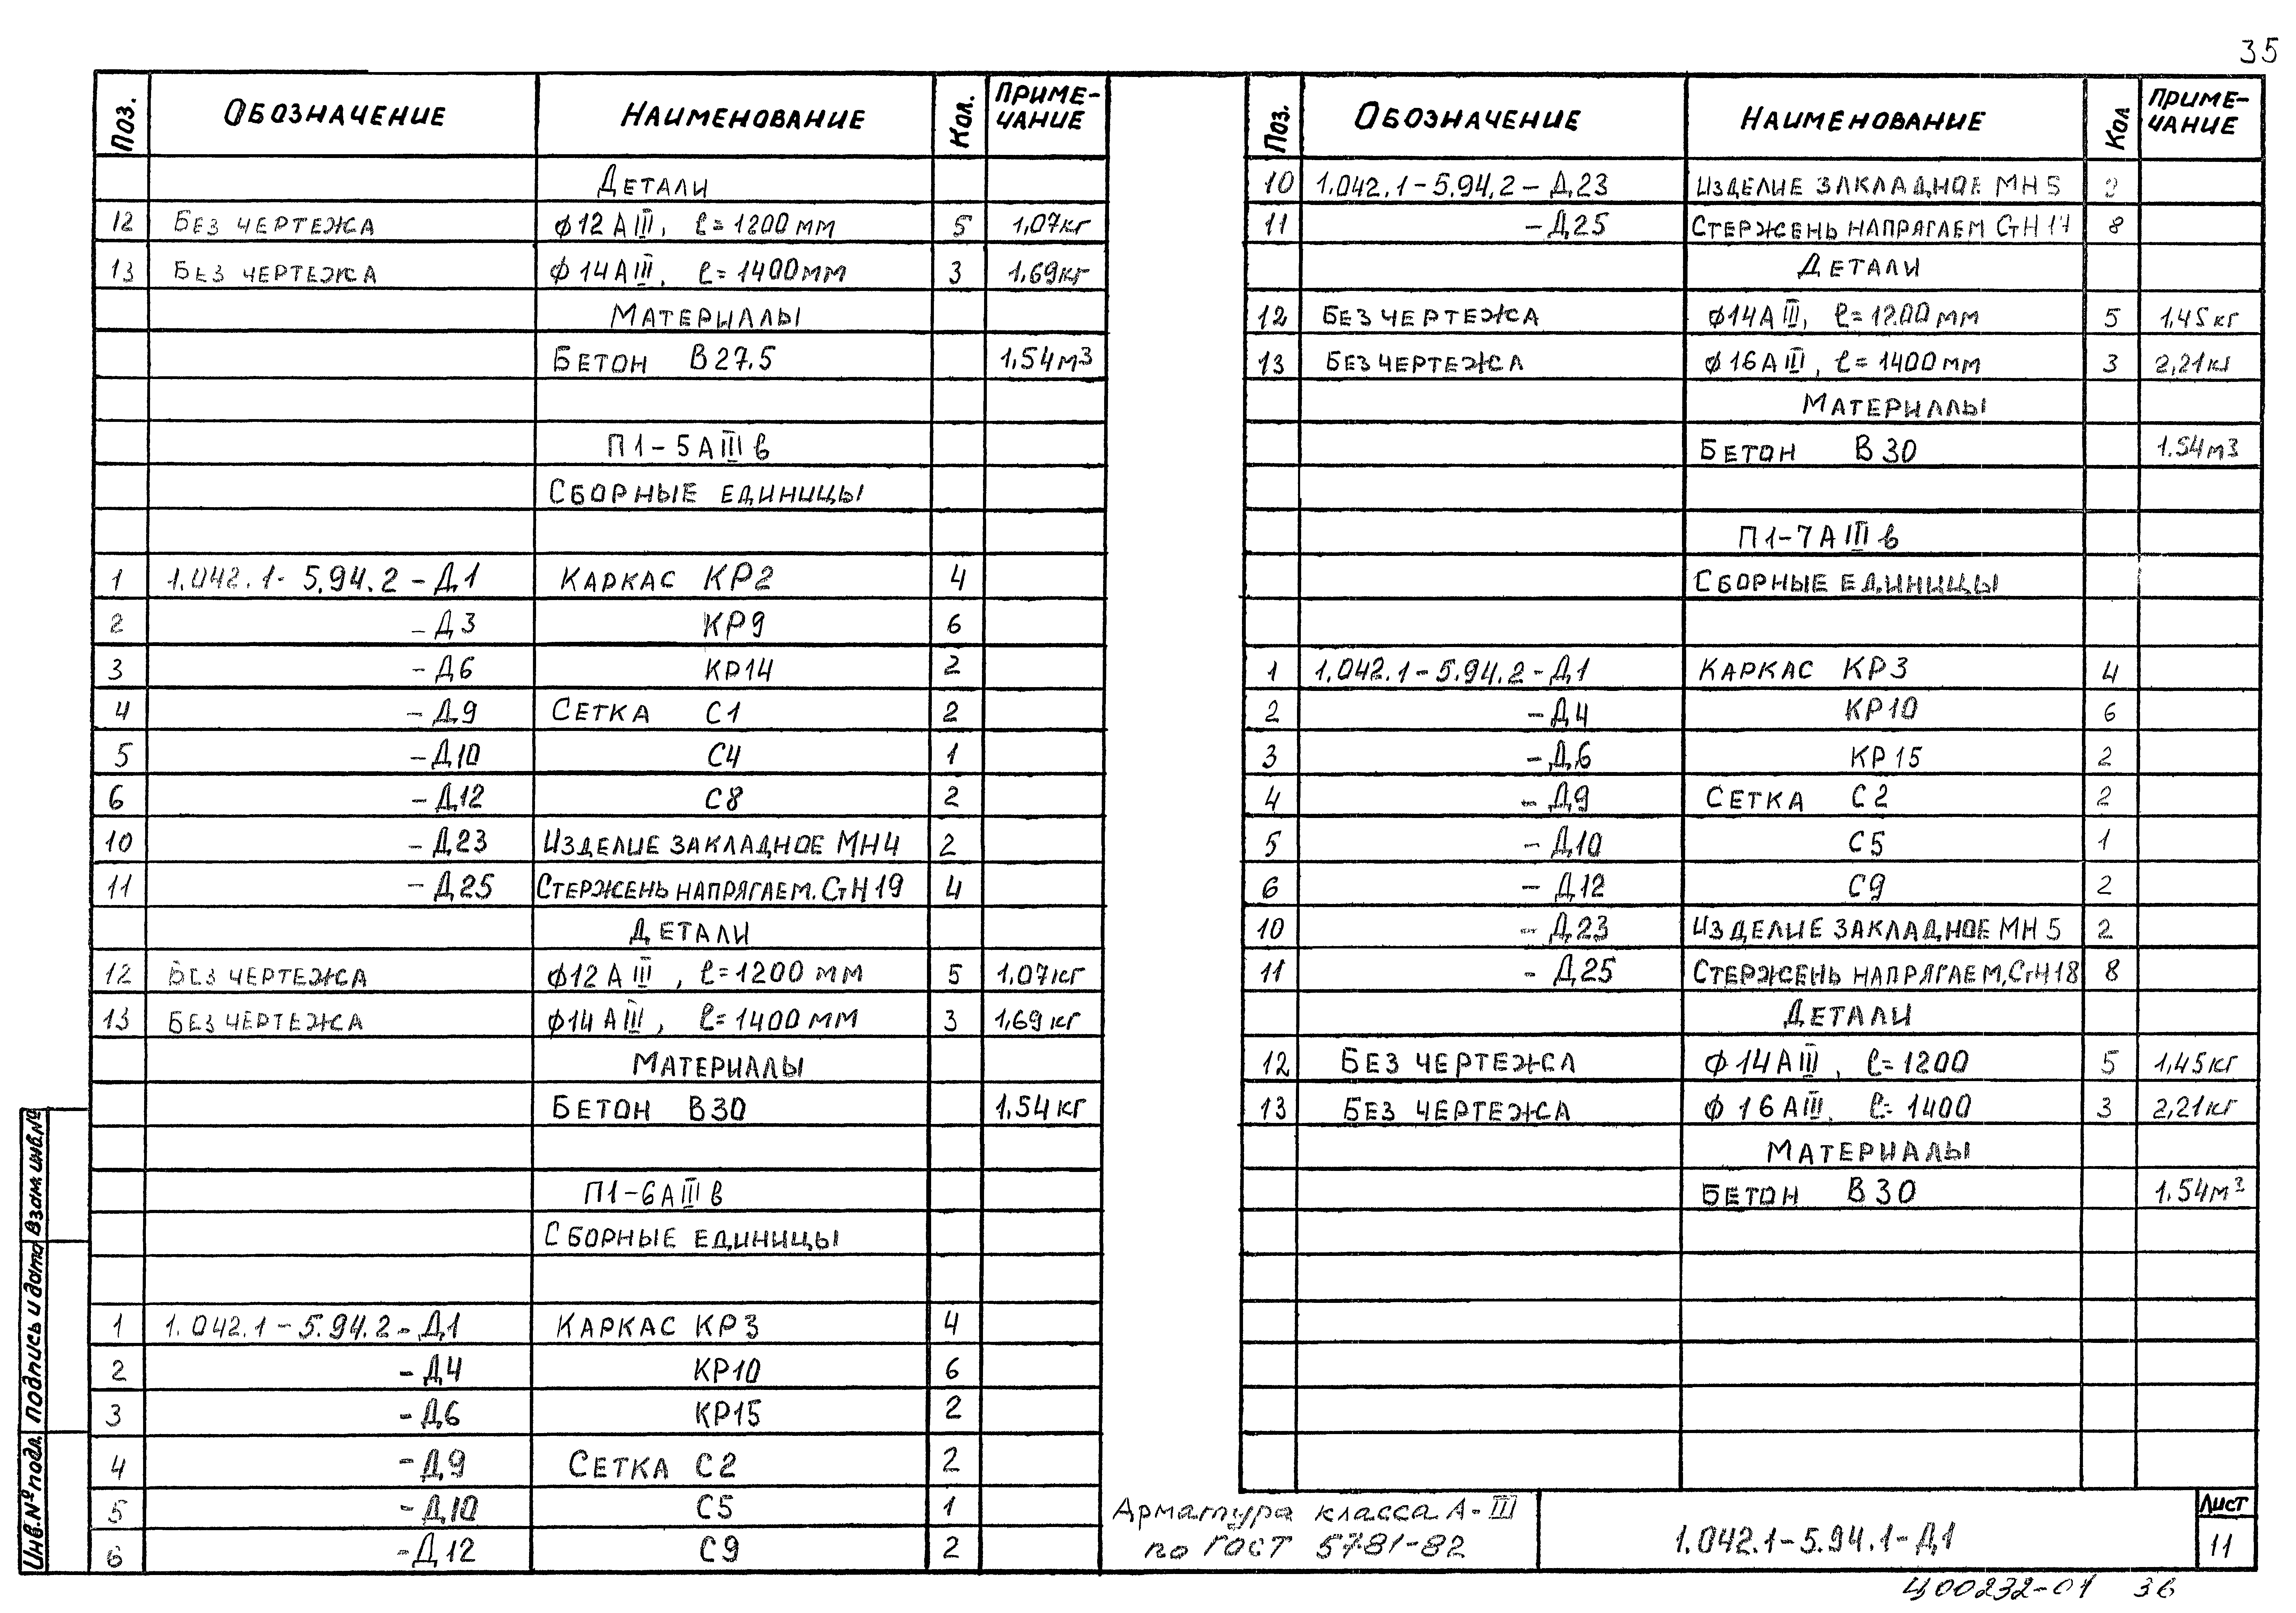 35
Поз. Обозначение Наименование Кол. Приме-
чание
Детали
12 Без чертежа ф12АIII, ℓ=1200мм 5 1,07кг
13 Без чертежа ф14АIII, ℓ=1400мм 3 1,69кг
Материалы
Бетон В27.5 1,54м3
П1-5АIIIв
Сборные единицы
1 1.042.1-5.94.2-Д1 Каркас КР2 4
2 -Д3 КР9 6
3 -Д6 КР14 2
4 -Д9 Сетка С1 2
5 -Д10 С4 1
6 -Д12 С8 2
10 -Д23 Изделие закладное МН4 2
11 -Д25 Стержень напрягаем. СтН19 4
Детали
12 Без чертежа ф12АIII, ℓ=1200мм 5 1,07кг
13 Без чертежа ф14АIII, ℓ=1400мм 3 1,69кг
Материалы
Бетон В30 1.54кг
П1-6АIIIв
Сборные единицы
1 1.042.1-5.94.2-Д1 Каркас КР3 4
2 -Д4 КР10 6
3 -Д6 КР15 2
4 -Д9 Сетка С2 2
5 -Д10 С5 1
6 -Д12 С9 2
Поз. Обозначение Наименование Кол Приме-
чание
10 1.042.1-5.94.2-Д23 Изделие закладное МН5 2
11 -Д25 Стержень напрягаем СтН17 8
Детали
12 Без чертежа ф14АIII, ℓ=1200мм 5 1,45кг
13 Без чертежа ф16АIII, ℓ=1400мм 3 2,21кг
Материалы
Бетон В30 1.54м3
П1-7АIIIв
Сборные единицы
1 1.042.1-5.94.2-Д1 Каркас КР3 4
2 -Д4 КР10 6
3 -Д6 КР15 2
4 -Д9 Сетка С2 2
5 -Д10 С5 1
6 -Д12 С9 2
10 -Д23 Изделие закладное МН5 2
11 -Д25 Стержень напрягаем, СтН18 8
Детали
12 Без чертежа ф14АIII, ℓ=1200 5 1,45кг
13 Без чертежа ф16АIII, ℓ=1400 3 2,21кг
Материалы
Бетон В30 1.54м3
Инв.№ подл. Подпись и дата Взам. инв.№
Арматура класса А-III
по ГОСТ 5781-82
1.042.1-5.94.1-Д1
Лист
11
Ц00232-01 36